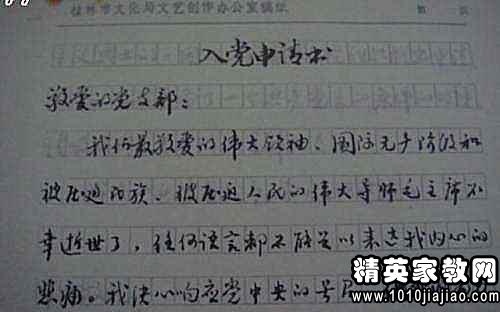 桂林市文化局文艺创作办公室稿纸
入党申请书
敬爱的党支部:
我们最敬爱的伟大领袖、国际无产阶级和
被压迫民族、被压迫人民的伟大导师毛主席不
幸逝世了,任何语言都不能足以表达我内心的
悲痛。我决心响应党中央的号
精英家教网
www.1010jiajiao.com